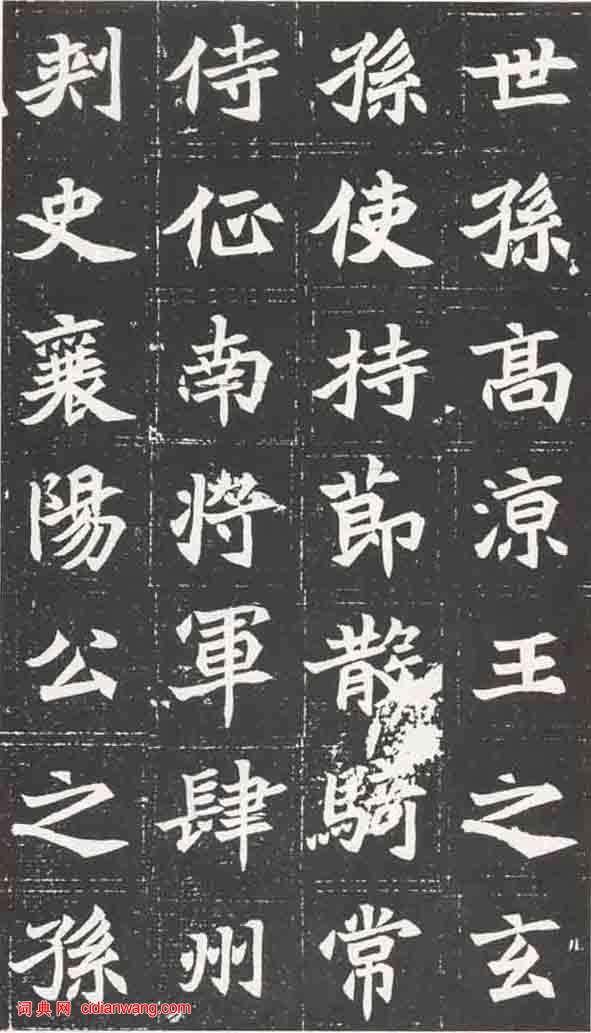 世孫高涼王之玄
孫使持節散騎常
侍征南將軍肆州
刾史襄陽公之孫
词典网 cidianwang.com